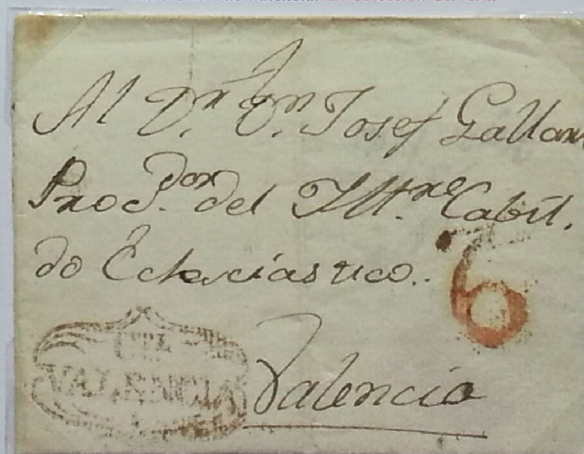 Al Dr. Dn. Josef Gallar
Procdor. del Iltre. Cabil.
do Eclesiastico.
6
VALENCIA
Valencia